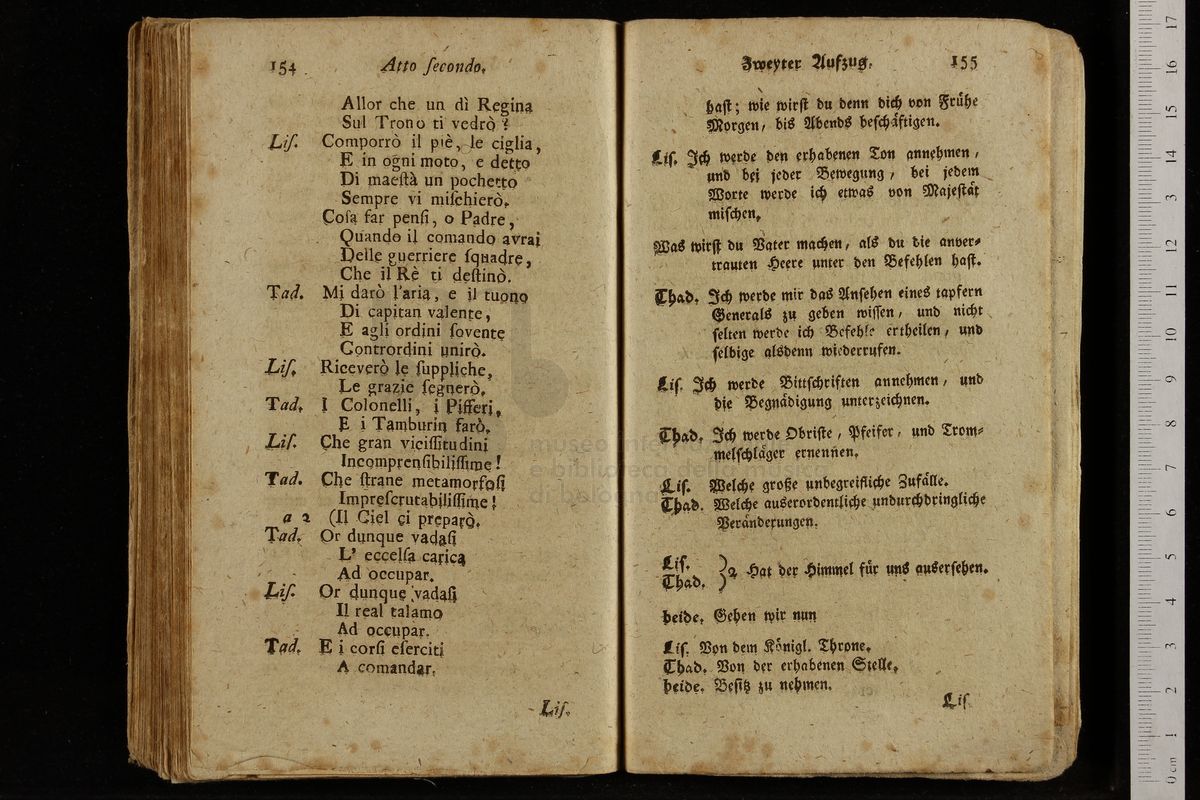 154 Atto ſecondo.
Allor che un dì Regina
Sul Trono ti vedrò?
Liſ. Comporrò il piè, le ciglia,
E in ogni moto, e detto
Di maeſtà un pochetto
Sempre vi miſchierò.
Coſa far penſi, o Padre,
Quando il comando avrai
Delle guerriere ſquadre,
Che il Rè ti deſtinò.
Tad. Mi darò l'aria, e il tuono
Di capitan valente,
E agli ordini ſovente
Contrordini unirò.
Liſ. Riceverò le ſuppliche,
Le grazie ſegnerò.
Tad. I Colonelli, i Pifferi,
E i Tamburin farò.
Liſ. Che gran viciſſitudini
Incomprenſibiliſſime!
Tad. Che ſtrane metamorfoſi
Impreſcrutabiliſſime!
a 2 (Il Ciel ci preparò.
Tad. Or dunque vadaſi
L' eccelſa carica
Ad occupar.
Liſ. Or dunque vadaſi
Il real talamo
Ad occupar.
Tad. E i corſi eſerciti
A comandar.
Liſ.
Zweyter Aufzug. 155
haſt; wie wirſt du denn dich von Frühe
Morgen, bis Abends beſchäftigen.
Liſ. Ich werde den erhabenen Ton annehmen,
und bei jeder Bewegung, bei jedem
Worte werde ich etwas von Majeſtät
miſchen.
Was wirſt du Vater machen, als du die anver-
trauten Heere unter den Befehlen haſt.
Thad. Ich werde mir das Anſehen eines tapfern
Generals zu geben wiſſen, und nicht
ſelten werde ich Befehle ertheilen, und
ſelbige alsdenn wiederrufen.
Liſ. Ich werde Bittſchriften annehmen, und
die Begnädigung unterzeichnen.
Thad. Ich werde Obriſte, Pfeifer, und Trom-
melſchläger ernennen.
Liſ. Welche große unbegreifliche Zufälle.
Thad. Welche auserordentliche undurchdringliche
Veränderungen.
Liſ.
Thad. }2 Hat der Himmel für uns auserſehen.
beide. Gehen wir nun
Liſ. Von dem Königl. Throne.
Thad. Von der erhabenen Stelle.
beide. Beſitz zu nehmen.
Liſ.
museo internazionale
e biblioteca della musica
di bologna
17
16
15
14
13
12
11
10
9
8
7
6
5
4
3
2
1
0 cm